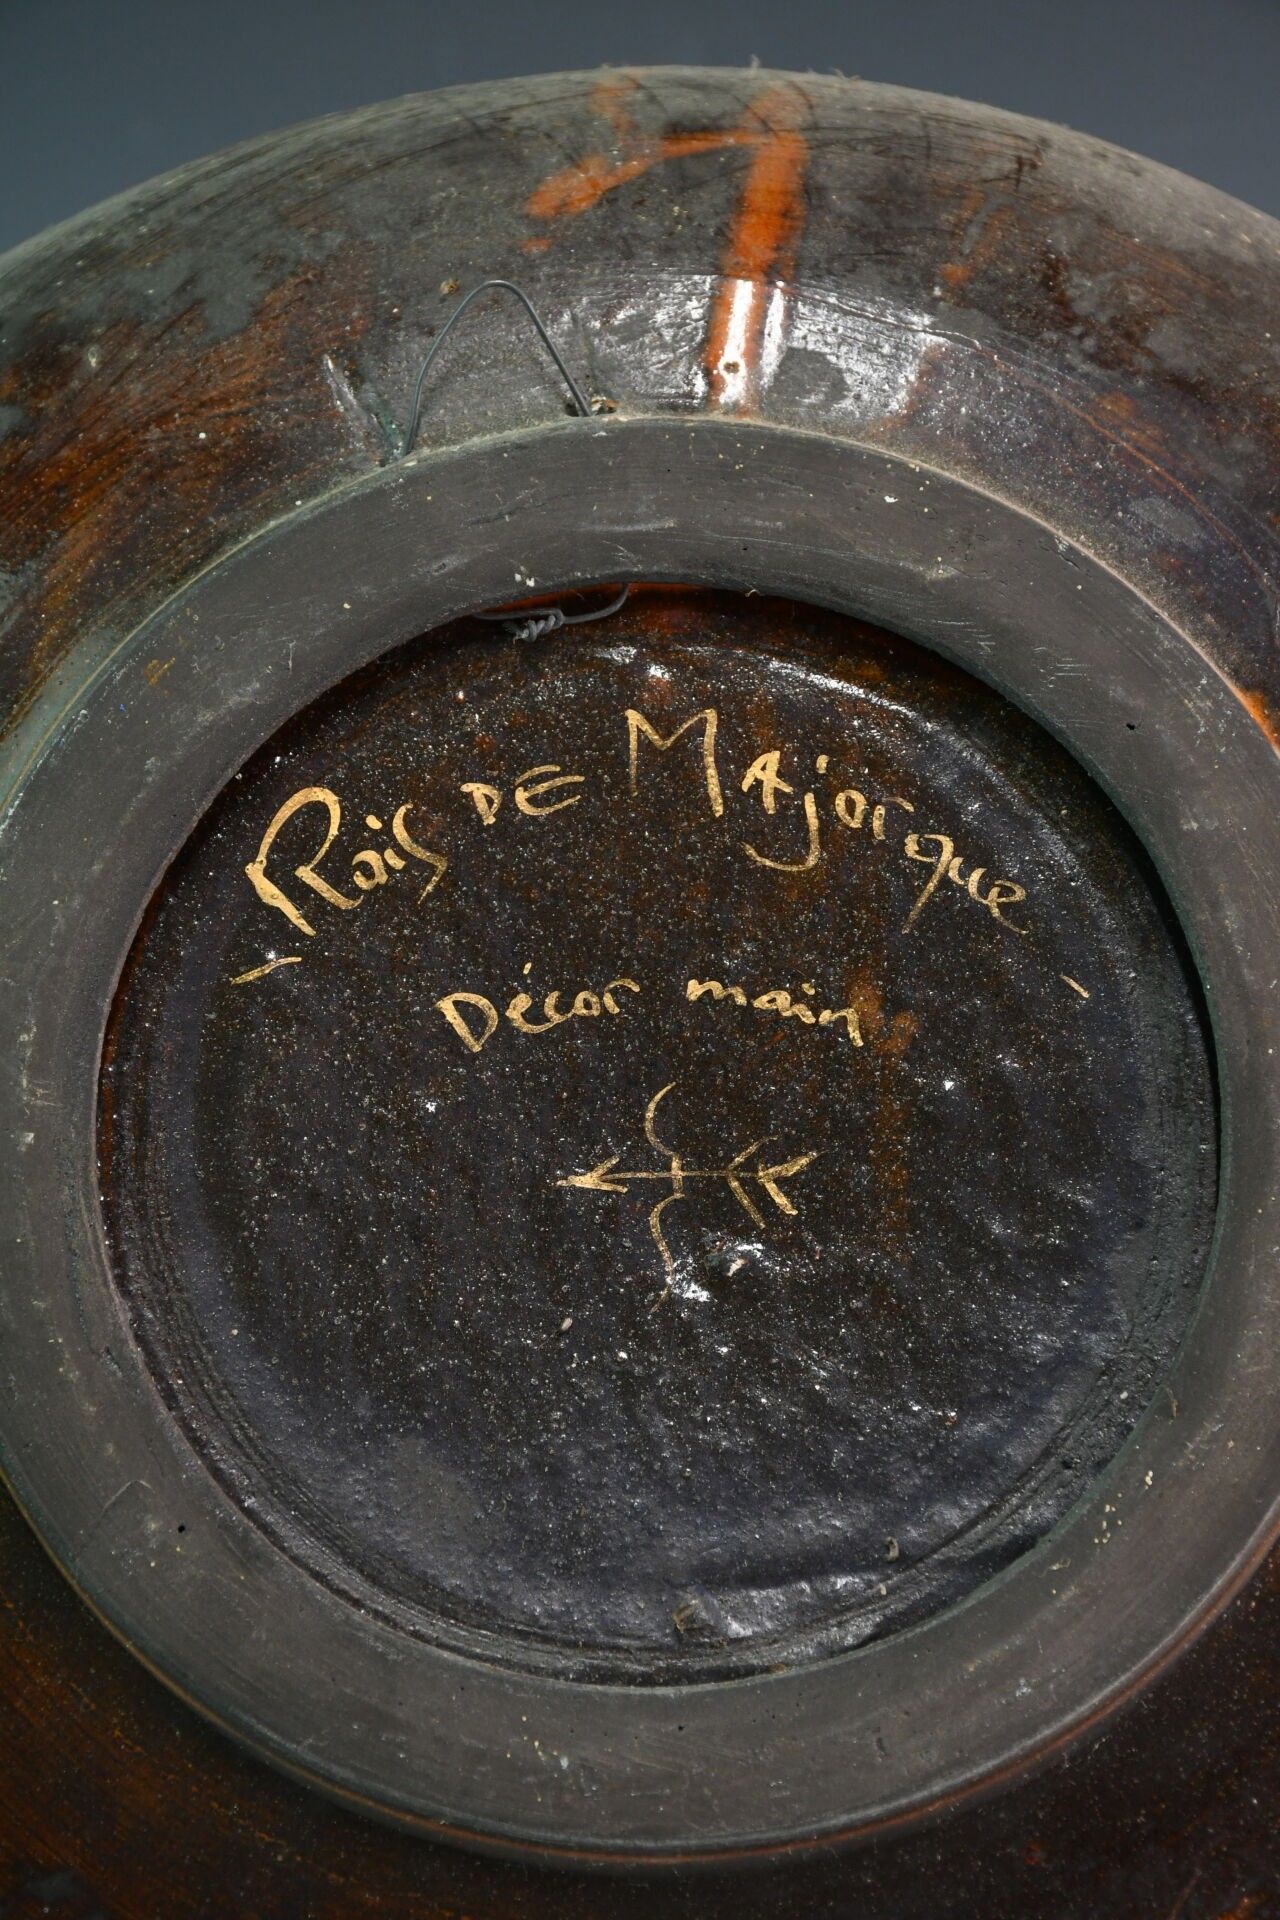 Rois DE MAjorque
Décor main